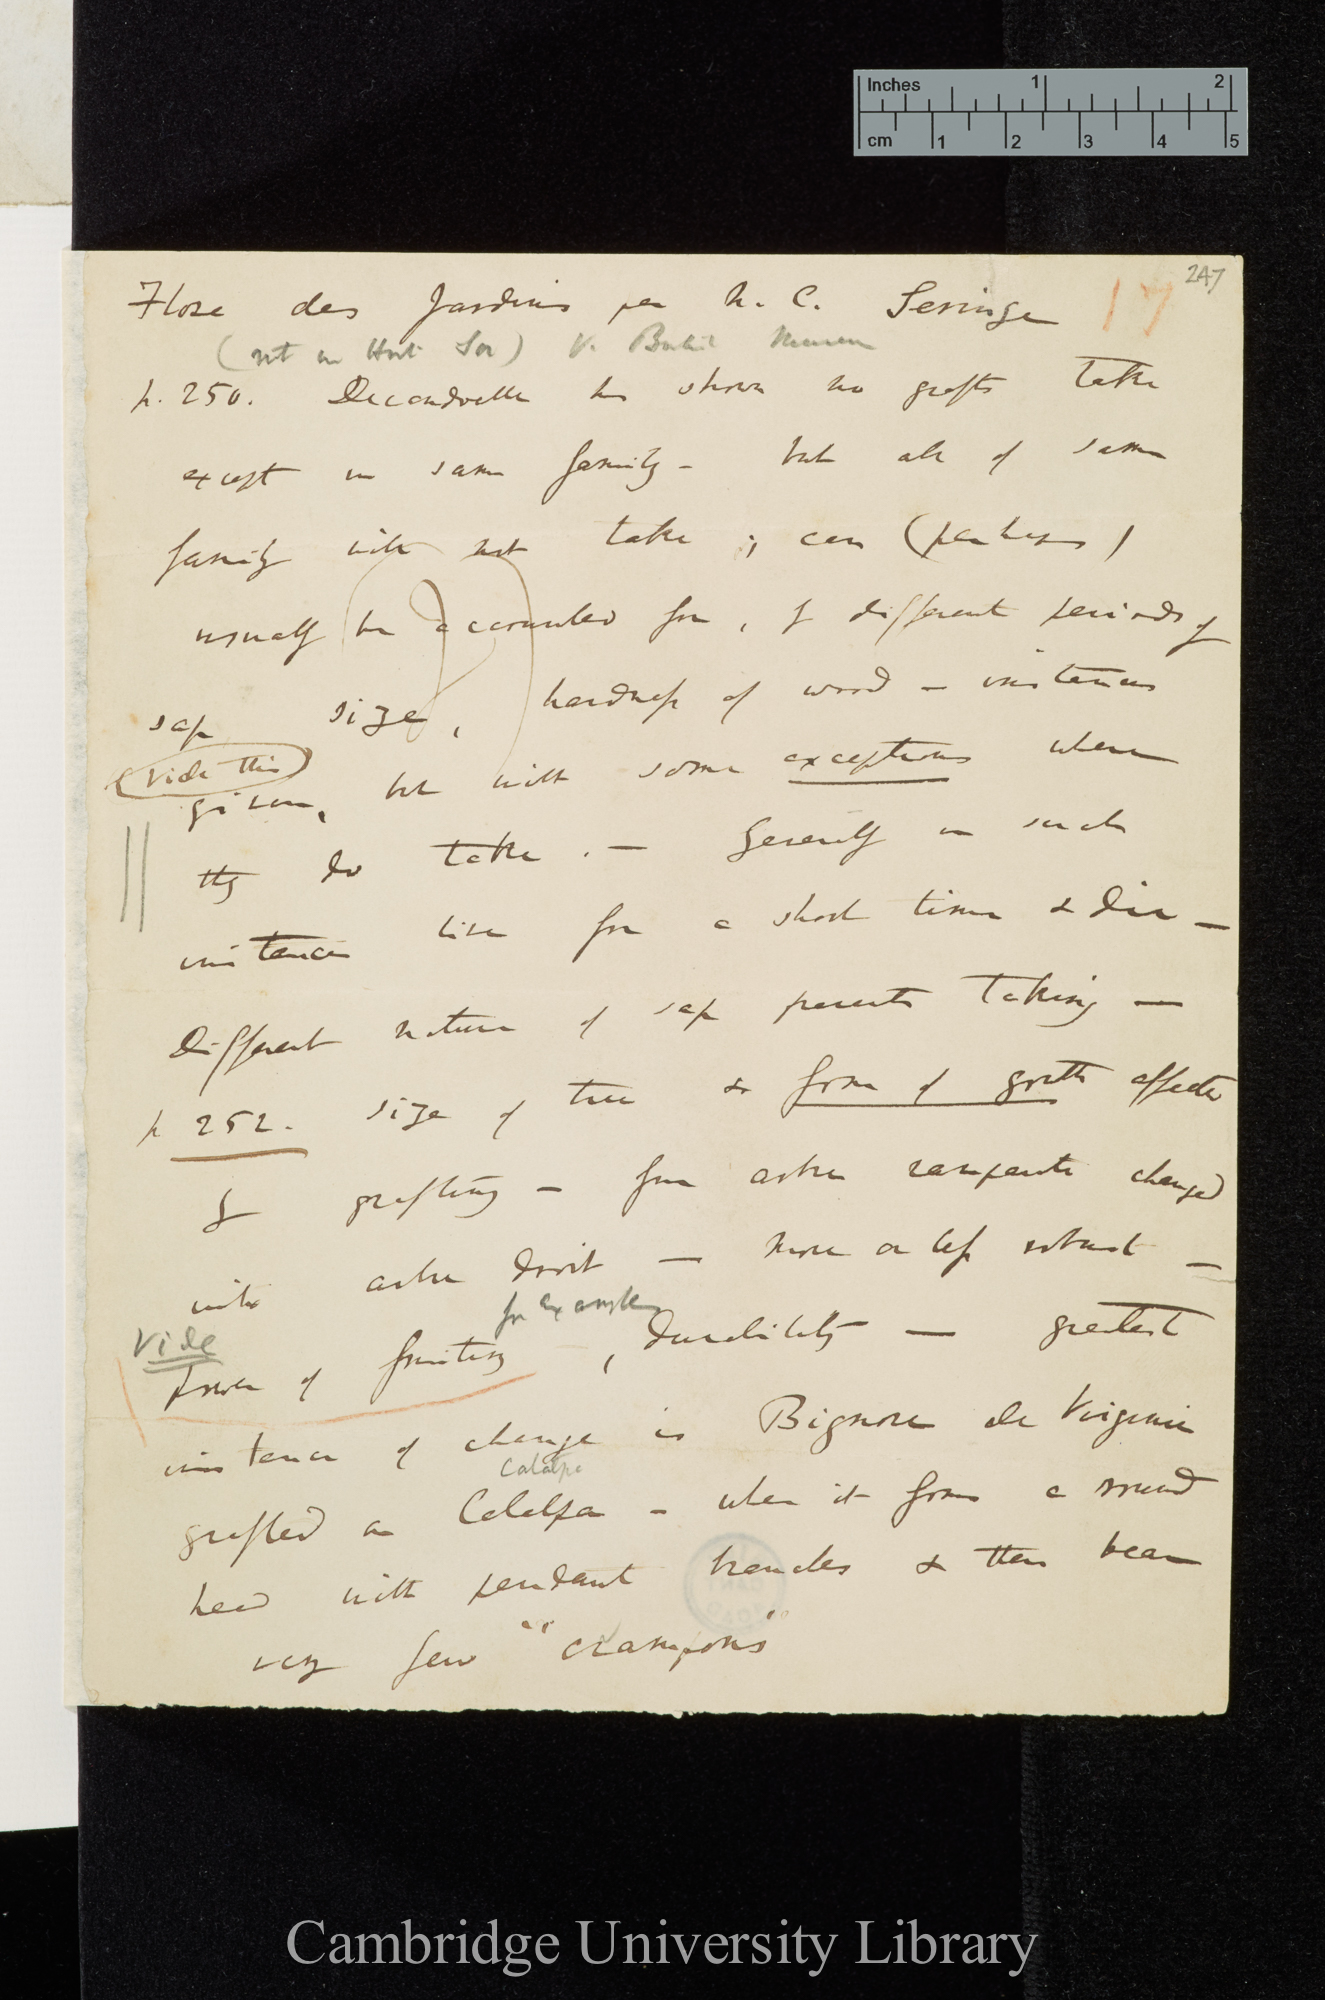 Inches 1 2
cm 1 2 3 4 5
247
17
Flore des Jardins par N. C. Seringe
(not in Hort Soc) V. Brit Museum
p. 250. Decandolle has shown no grafts take
except in same family – but all of same
family will not take ; can (perhaps)
usually be accounted for, by different periods of
sap size, hardness of wood – instances
Vide this
given, but with some exceptions where
they do take. – Generally in such
instances live for a short time & die –
Different nature of sap prevents taking –
p 252. size of tree & form of growth affected
by grafting – from arbre rampante changed
into arbre droit – more or less robust –
for example
Vide
power of fruiting , durability – greatest
instance of change is Bignone de Virginie
Catalpa
grafted on Catalpa – when it forms a round
head with pendant branches & then bears
very few "crampons"
Cambridge University Library